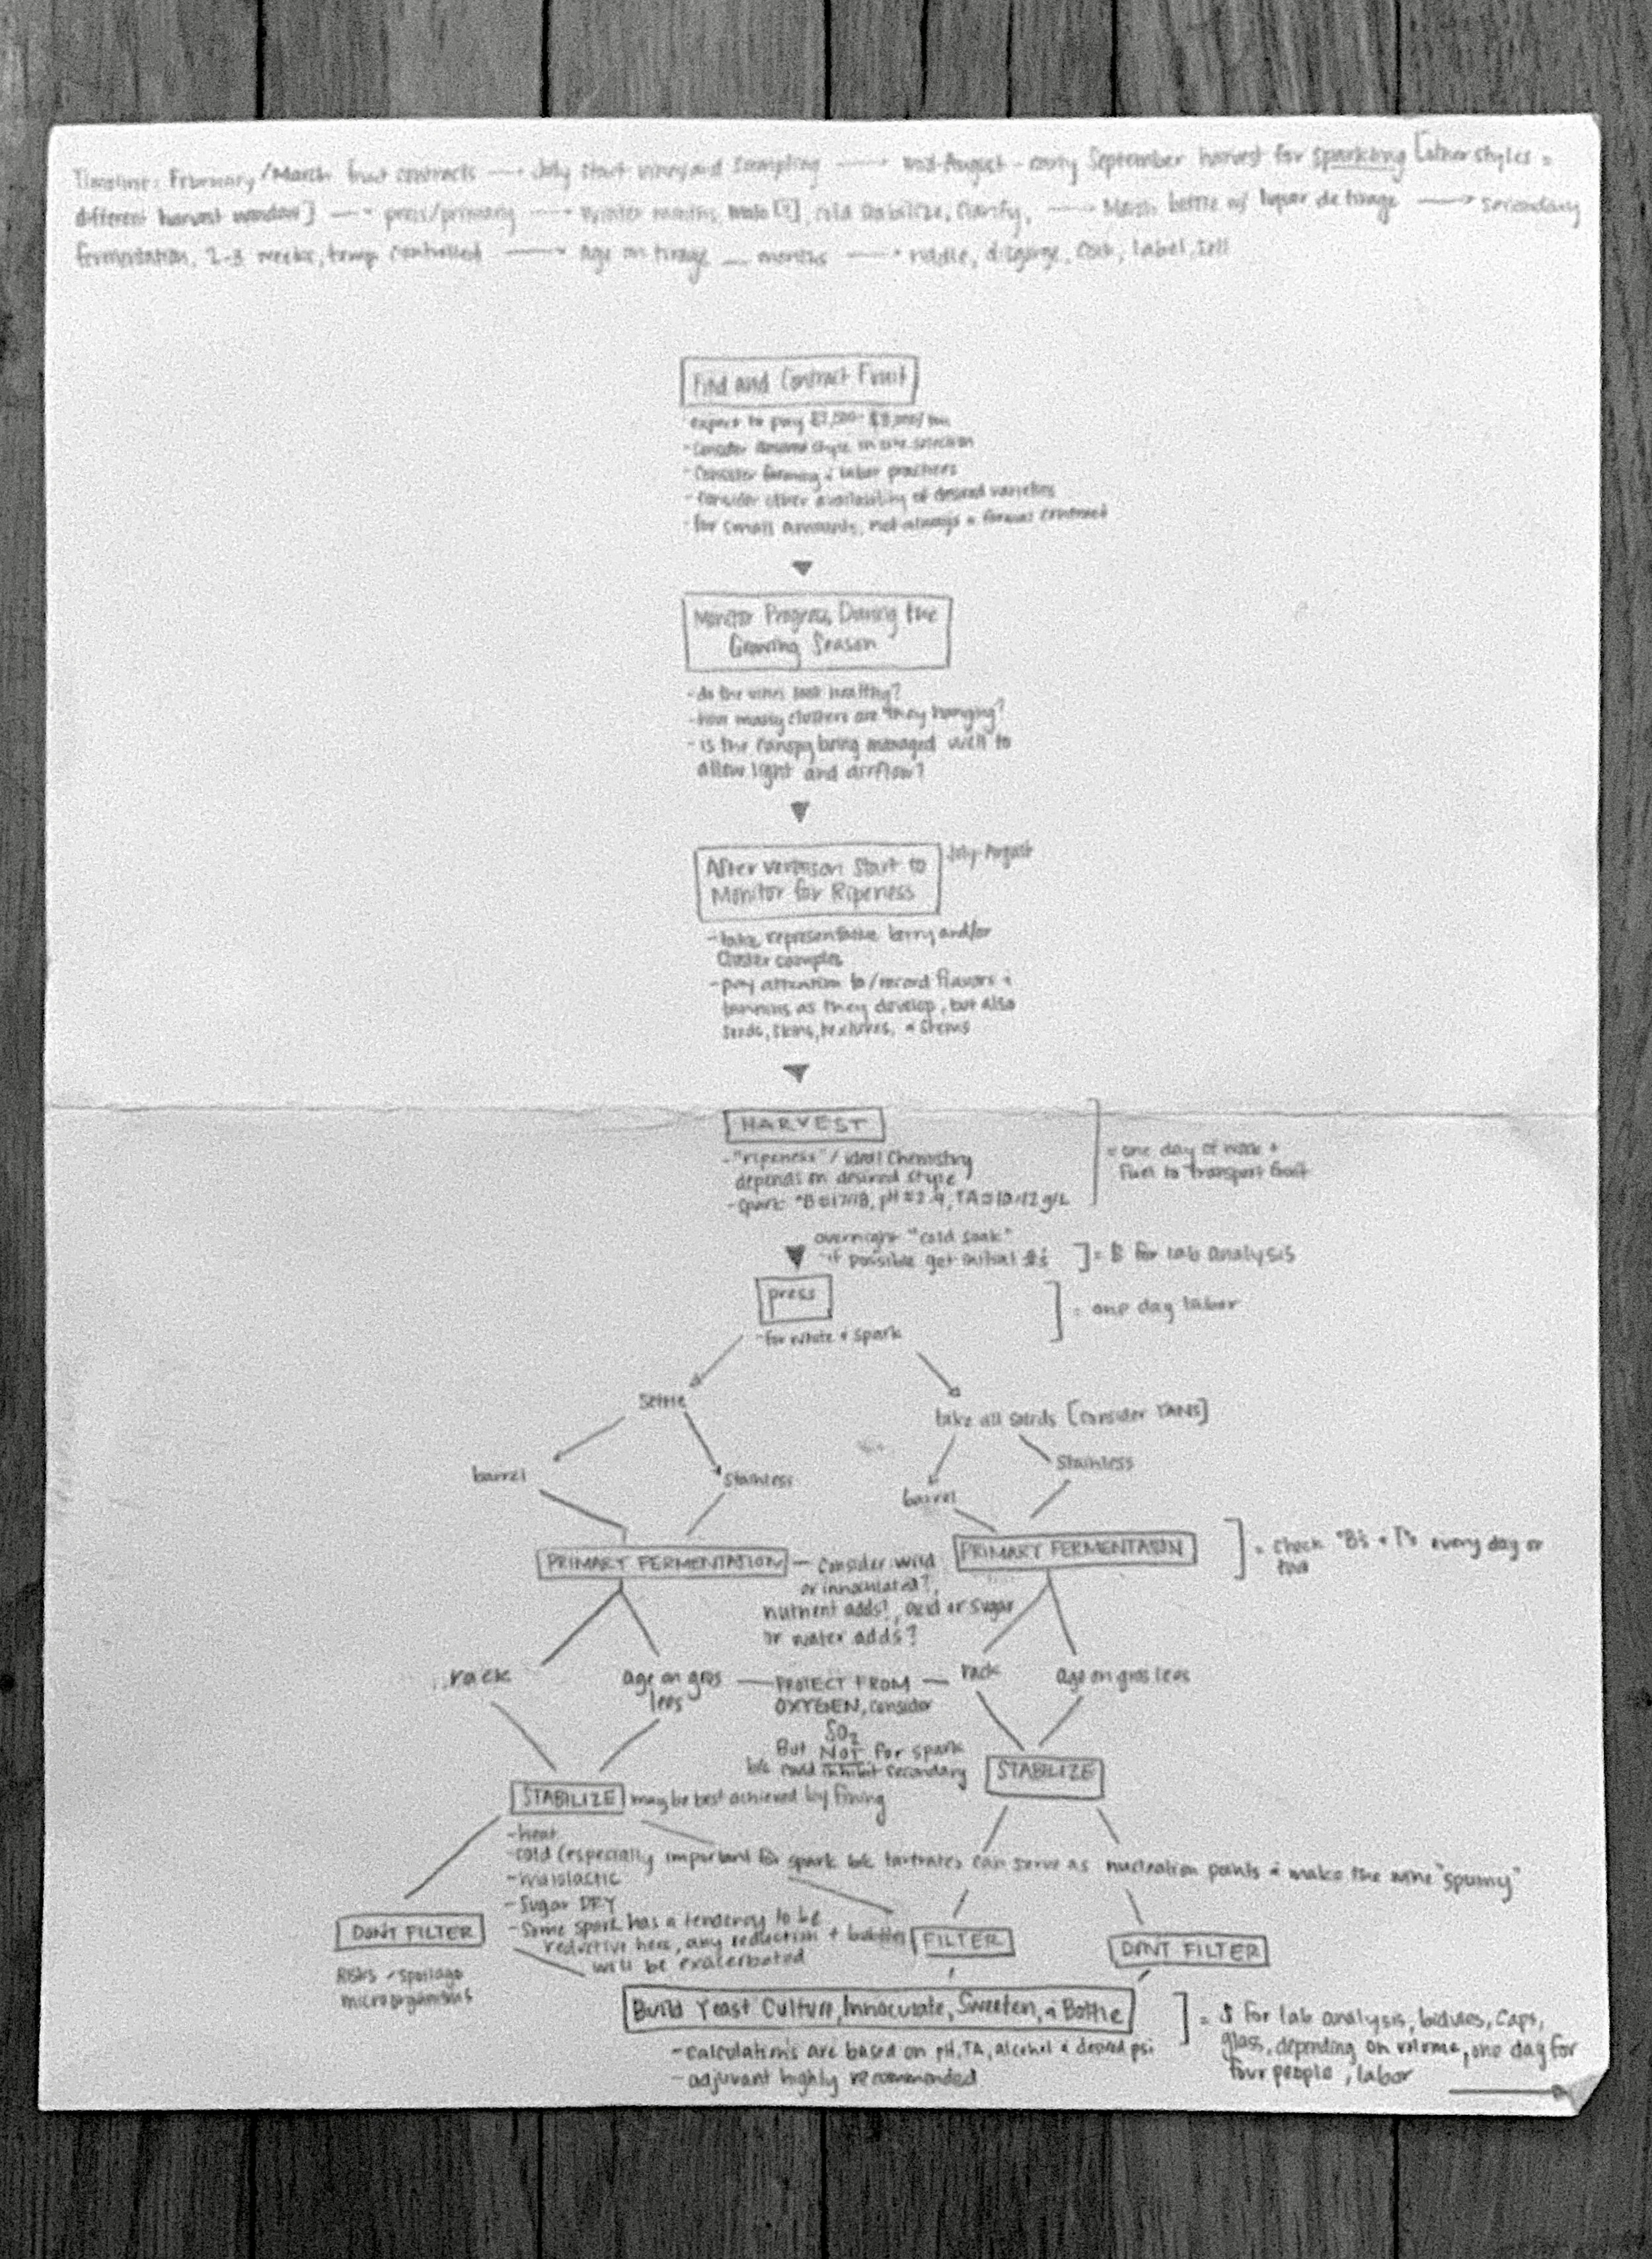 Timeline: February/March fruit contracts → July start vineyard sampling → mid-August - early September harvest for sparkling [other styles =
different harvest window] → press/primary → Winter months, malo [?], cold stabilize, clarify, → March bottle w/ liquor de tirage → secondary
fermentation, 2-3 weeks, temp controlled → age on tirage __ months → riddle, disgorge, cork, label, sell
Find and Contract Fruit
expect to pay
- Consider desired style in site selection
- Consider farming + labor practices
- Consider other availability of desired varieties
- for small amounts, not always a formal contract
Monitor Progress During the
Growing Season
- do the vines look healthy?
- how many clusters are they hanging?
- is the canopy being managed well to
allow light and airflow?
After veraison Start to
Monitor for Ripeness
July-August
- take representative berry and/or
cluster samples
- pay attention to/record flavors +
tannins as they develop, but also
seeds, skins, textures, + stems
HARVEST
- "ripeness" / ideal Chemistry
depends on desired style
- spark: °B = 17/18, pH = TA = 10-12 g/L
= one day of work +
fuel to transport fruit
overnight "cold soak"
if possible get initial #s
] = $ for lab analysis
press
- for white + spark
= one day labor
settle
take all solids [consider YANS]
barrel
stainless
barrel
stainless
PRIMARY FERMENTATION
- consider wild
or innoculated?,
nutrient adds?, acid or sugar
or water adds?
PRIMARY FERMENTATION
= check °B's + T°s every day or
two
rack
age on gros
lees
PROTECT FROM
OXYGEN, consider
SO2
But NOT for spark
b/c could inhibit secondary
rack
age on gros lees
STABILIZE
STABILIZE
may be best achieved by fining
- heat
- cold (especially important for spark b/c tartrates can serve as nucleation points + make the wine "spumy"
- malolactic
- Sugar DRY
- Some spark has a tendency to be
reductive here, any reduction + bubbles
will be exacerbated
DONT FILTER
Risks - spoilage
microorganisms
FILTER
DONT FILTER
Build Yeast Culture, Innoculate, Sweeten, + Bottle
- calculations are based on pH, TA, alcohol + desired psi
- adjuvant highly recommended
= $ for lab analysis, bidules, caps,
glass, depending on volume, one day for
four people, labor